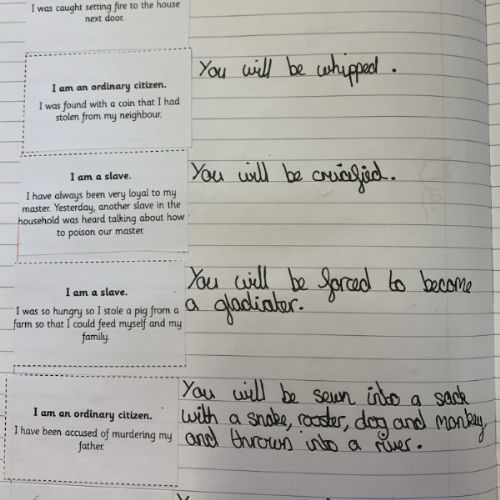 I was caught setting fire to the house
next door.
You will be whipped.
I am an ordinary citizen.
I was found with a coin that I had
stolen from my neighbour.
You will be crucified.
I am a slave.
I have always been very loyal to my
master. Yesterday, another slave in the
household was heard talking about how
to poison our master.
You will be forced to become
a gladiator.
I am a slave.
I was so hungry so I stole a pig from a
farm so that I could feed myself and my
family.
You will be sewn into a sack
with a snake, rooster, dog and monkey,
and thrown into a river.
I am an ordinary citizen.
I have been accused of murdering my
father.